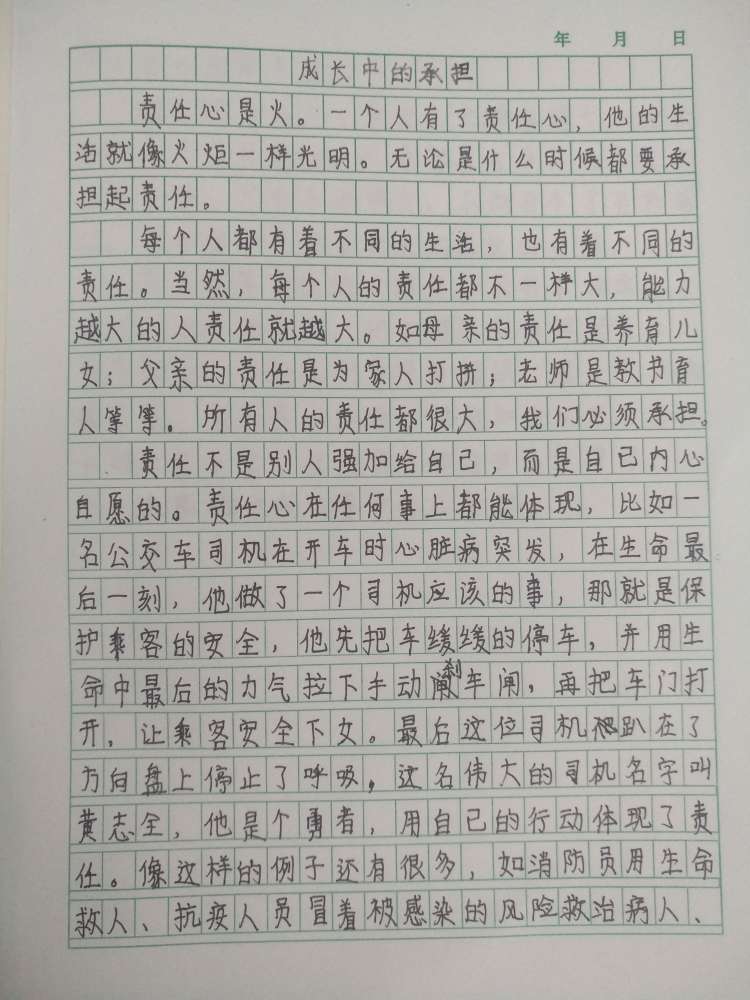 年 月 日
成长中的承担
责任心是火。一个人有了责任心，他的生
活就像火炬一样光明。无论是什么时候都要承
担起责任。
每个人都有着不同的生活，也有着不同的
责任。当然，每个人的责任都不一样大，能力
越大的人责任就越大。如母亲的责任是养育儿
女；父亲的责任是为家人打拼；老师是教书育
人等等。所有人的责任都很大，我们必须承担。
责任不是别人强加给自己，而是自己内心
自愿的。责任心在任何事上都能体现，比如一
名公交车司机在开车时心脏病突发，在生命最
后一刻，他做了一个司机应该的事，那就是保
护乘客的安全，他先把车缓缓的停车，并用生
命中最后的力气拉下手动刹车闸，再把车门打
开，让乘客安全下女。最后这位司机趴在了
方向盘上停止了呼吸。这名伟大的司机名字叫
黄志全，他是个勇者，用自己的行动体现了责
任。像这样的例子还有很多，如消防员用生命
救人、抗疫人员冒着被感染的风险救治病人、